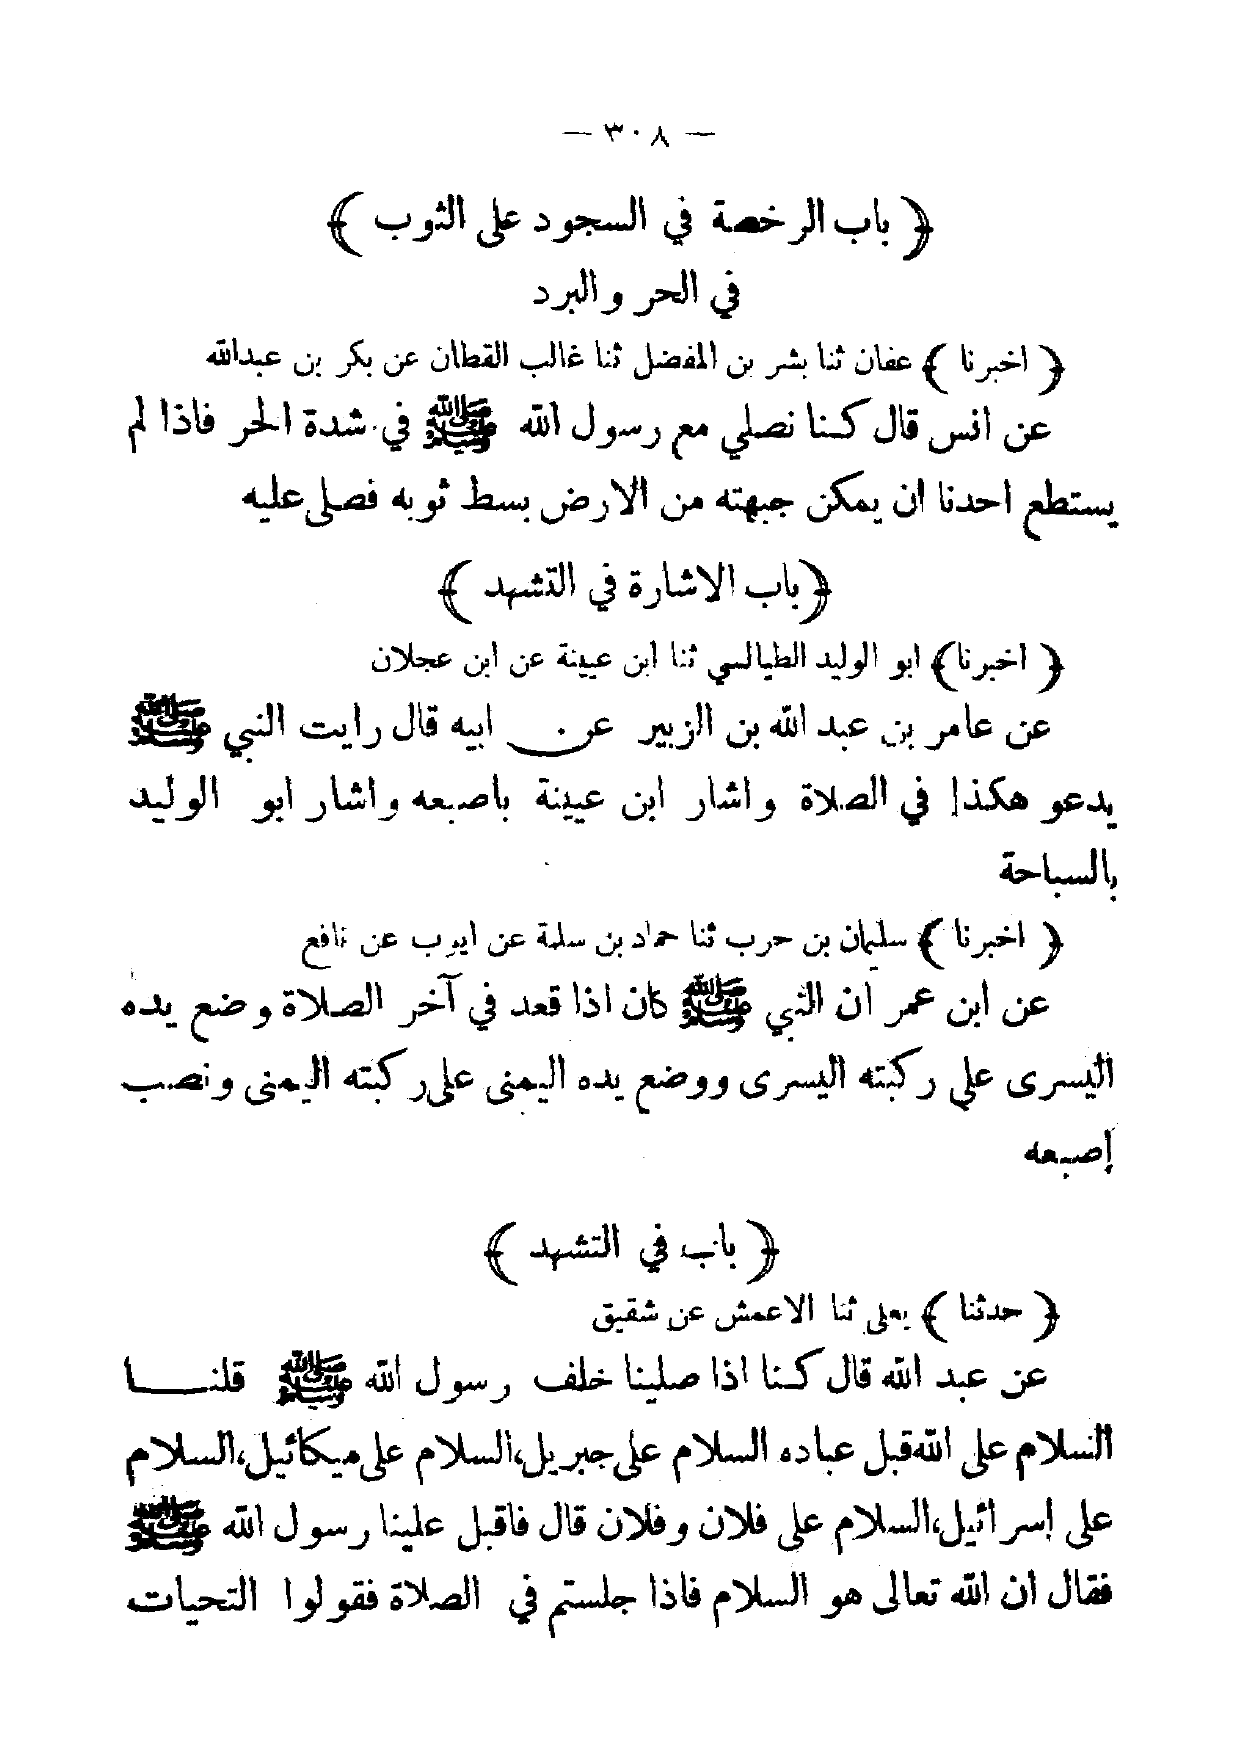 — ٣٠٨ —
﴿ باب الرخصة في السجود على الثوب ﴾
في الحر والبرد
﴿ اخبرنا ﴾ عفان ثنا بشر بن المفضل ثنا غالب القطان عن بكر بن عبدالله
عن انس قال كنا نصلي مع رسول الله ﷺ في شدة الحر فاذا لم
يستطع احدنا ان يمكن جبهته من الارض بسط ثوبه فصلى عليه
﴿باب الاشارة في التشهد ﴾
﴿ اخبرنا﴾ ابو الوليد الطيالسي ثنا ابن عيينة عن ابن عجلان
عن عامر بن عبد الله بن الزبير عن ابيه قال رايت النبي ﷺ
يدعو هكذا في الصلاة واشار ابن عيينة باصبعه واشار ابو الوليد
بالسباحة
﴿ اخبرنا ﴾ سليمان بن حرب ثنا حماد بن سلمة عن ايوب عن نافع
عن ابن عمر ان النبي ﷺ كان اذا قعد في آخر الصلاة وضع يده
اليسرى على ركبته اليسرى ووضع يده اليمنى على ركبته اليمنى ونصب
إصبعه
﴿ باب في التشهد ﴾
﴿ حدثنا ﴾ يعلى ثنا الاعمش عن شقيق
عن عبد الله قال كنا اذا صلينا خلف رسول الله ﷺ قلنـــا
السلام على الله قبل عباده السلام على جبريل،السلام على ميكائيل،السلام
على إسرائيل،السلام على فلان وفلان قال فاقبل علينا رسول الله ﷺ
فقال ان الله تعالى هو السلام فاذا جلستم في الصلاة فقولوا التحيات